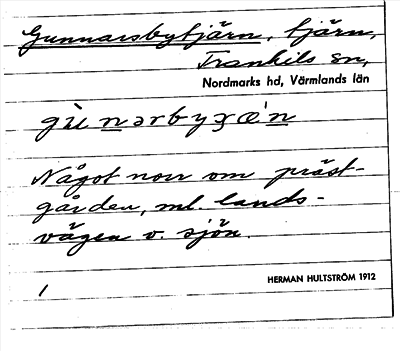 Gunnarsbytjärn, tjärn,
Trankils sn,
Nordmarks hd, Värmlands län
Något norr om präst-
gården, ml. lands-
vägen o. sjön.
1
HERMAN HULTSTRÖM 1912